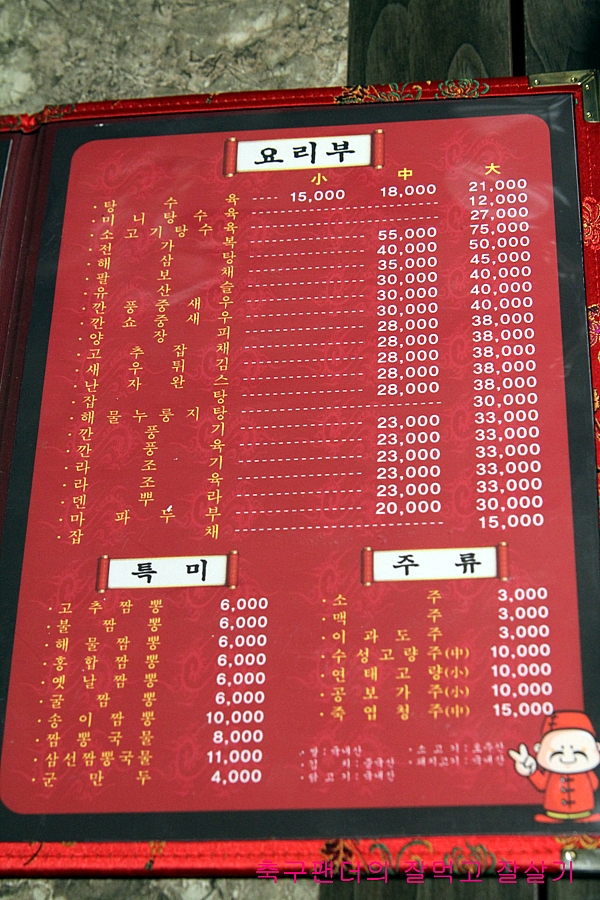 요리부
小 中 大
·탕수육 15,000 18,000 21,000
·미니탕수육 12,000
·소고기탕수육 27,000
·전가복 55,000 75,000
·해삼탕 40,000 50,000
·팔보채 35,000 45,000
·유산슬 30,000 40,000
·깐풍중새우 30,000 40,000
·깐쇼중새우 30,000 40,000
·양장피 28,000 38,000
·고추잡채 28,000 38,000
·새우튀김 28,000 38,000
·난자완스 28,000 38,000
·잡탕 28,000 38,000
·해물누룽지탕 30,000
·깐풍기 23,000 33,000
·깐풍육 23,000 33,000
·라조기 23,000 33,000
·라조육 23,000 33,000
·덴뿌라 23,000 33,000
·마파두부 20,000 30,000
·잡채 15,000
특미
·고추짬뽕 6,000
·불짬뽕 6,000
·해물짬뽕 6,000
·홍합짬뽕 6,000
·옛날짬뽕 6,000
·굴짬뽕 6,000
·송이짬뽕 10,000
·짬뽕국물 8,000
·삼선짬뽕국물 11,000
·군만두 4,000
주류
·소주 3,000
·맥주 3,000
·이과도주 3,000
·수성고량주(中) 10,000
·연태고량(小) 10,000
·공보가주(小) 10,000
·죽엽청주(中) 15,000
·쌀:국내산
·김치:중국산
·닭고기:국내산
·소고기:호주산
·돼지고기:국내산
축구팬더의 잘먹고 잘살기